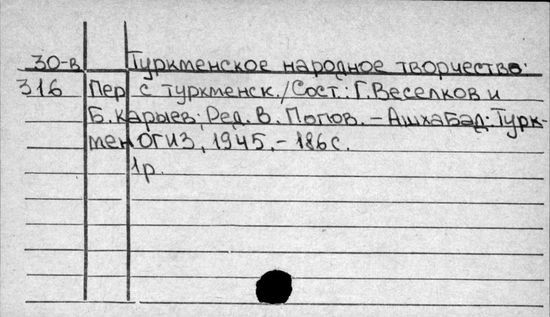 30-в Туркменское народное творчество:
316 Пер с туркменск./Сост.: Г. Веселков и
Б. Карыев; Ред. В. Попов. – Ашхабад: Турк-
менОГИЗ, 1945. – 186 с.
1р.